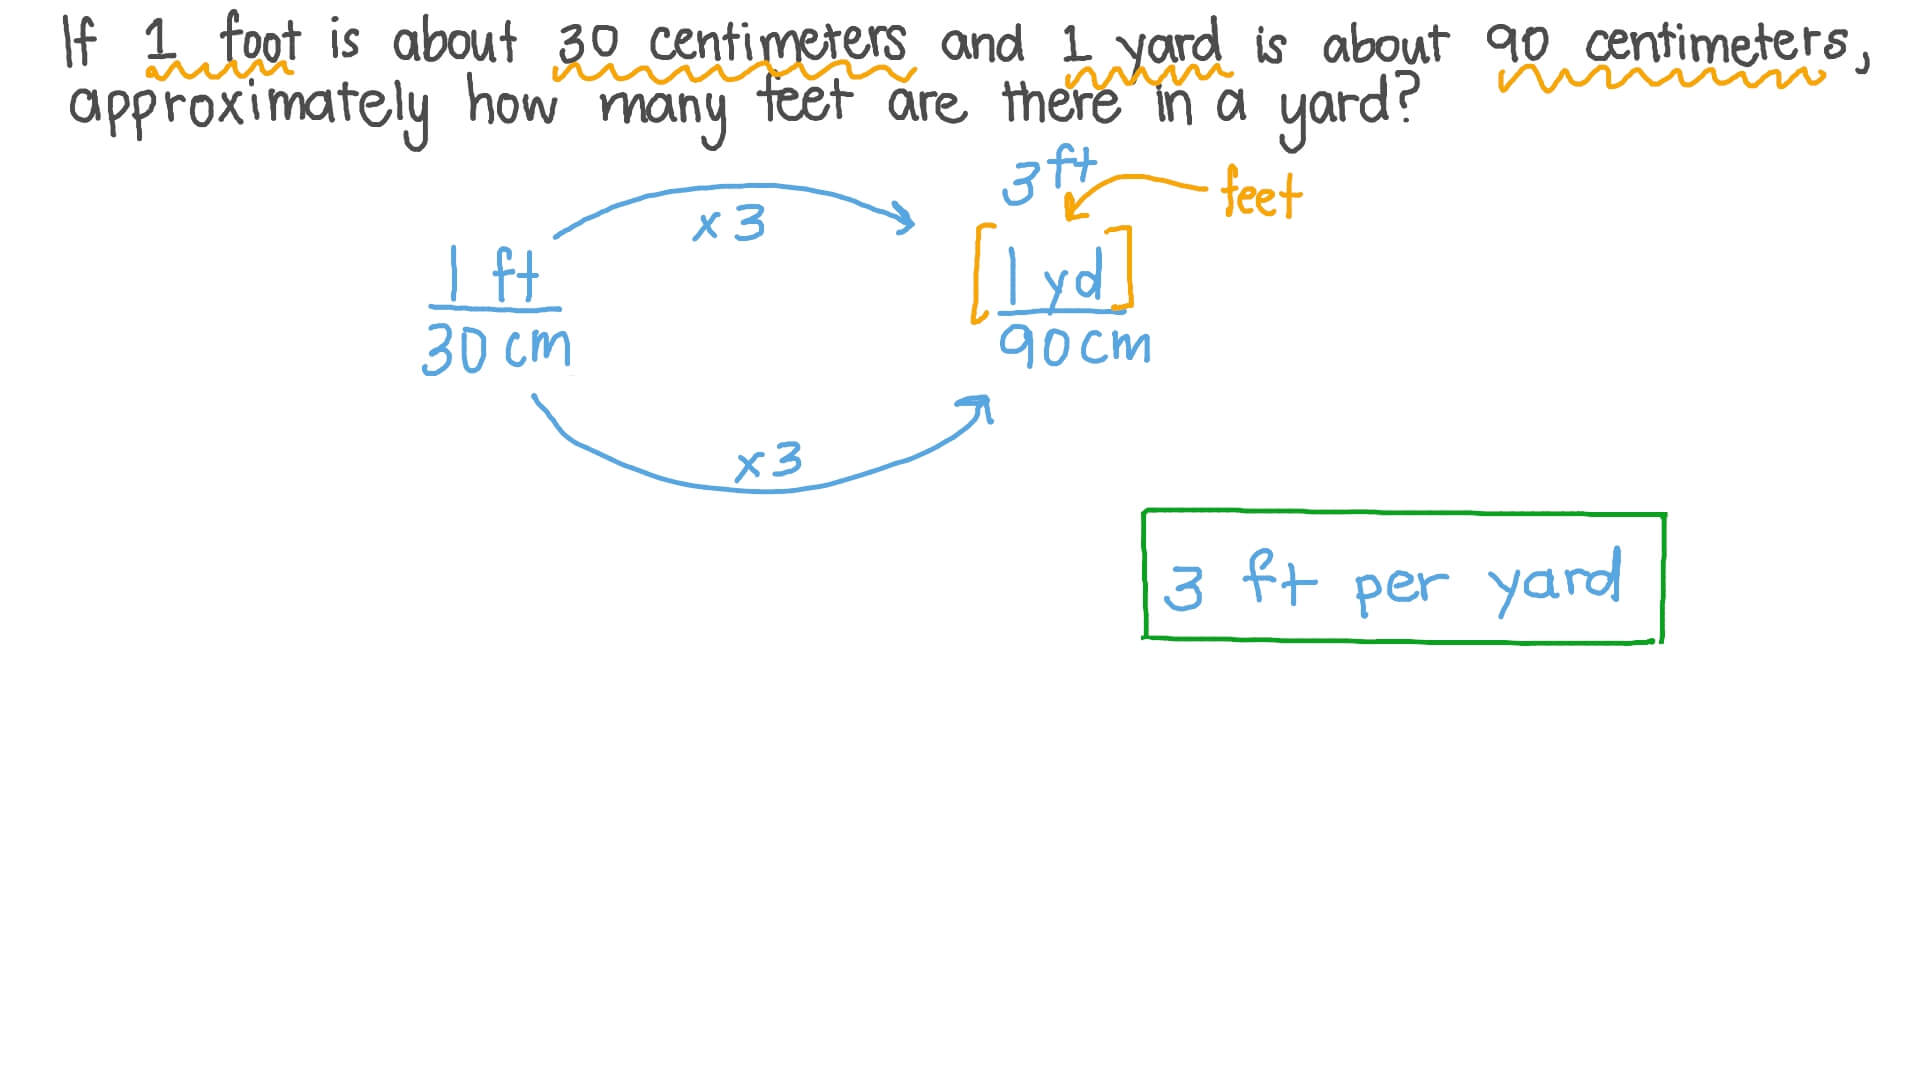 If 1 foot is about 30 centimeters and 1 yard is about 90 centimeters,
approximately how many feet are there in a yard?
3 ft
feet
x 3
1 ft
[1 yd]
30 cm
90 cm
x3
3 ft per yard